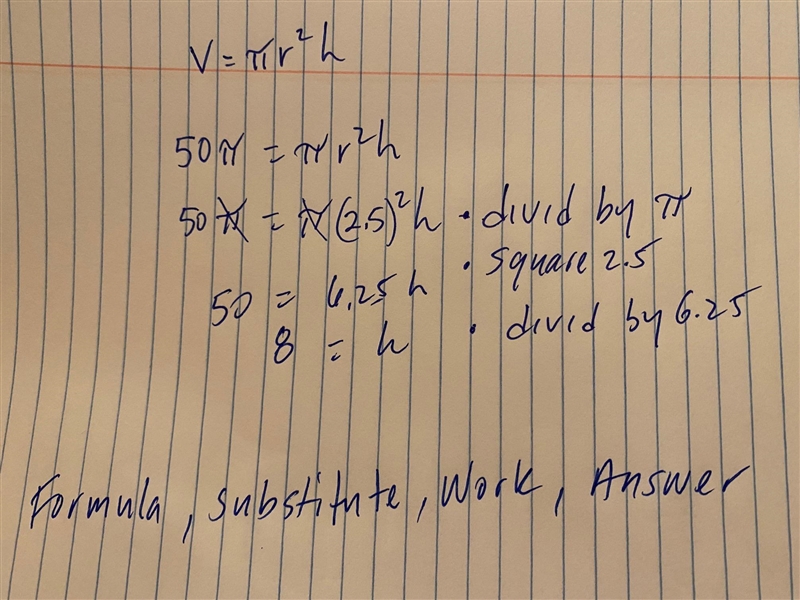 V = πr²h
50π = πr²h
50π = π(2.5)²h • divid by π
50 = 6.25h • square 2.5
8 = h • divid by 6.25
Formula, substitute, Work, Answer